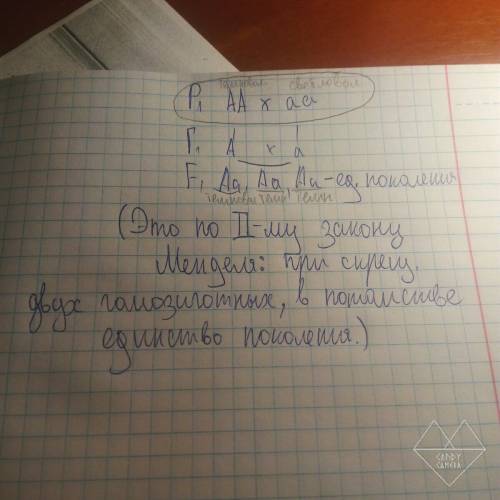 темновол. светловол.
P₁ AA x aa
Г₁ A x a
F₁ Aa, Aa, Aa - ед. поколения
темновол темн темн
(Это по II-му закону
Менделя: при скрещ.
двух гомозиготных, в потомстве
единство поколения.)
CANDY
CAMERA